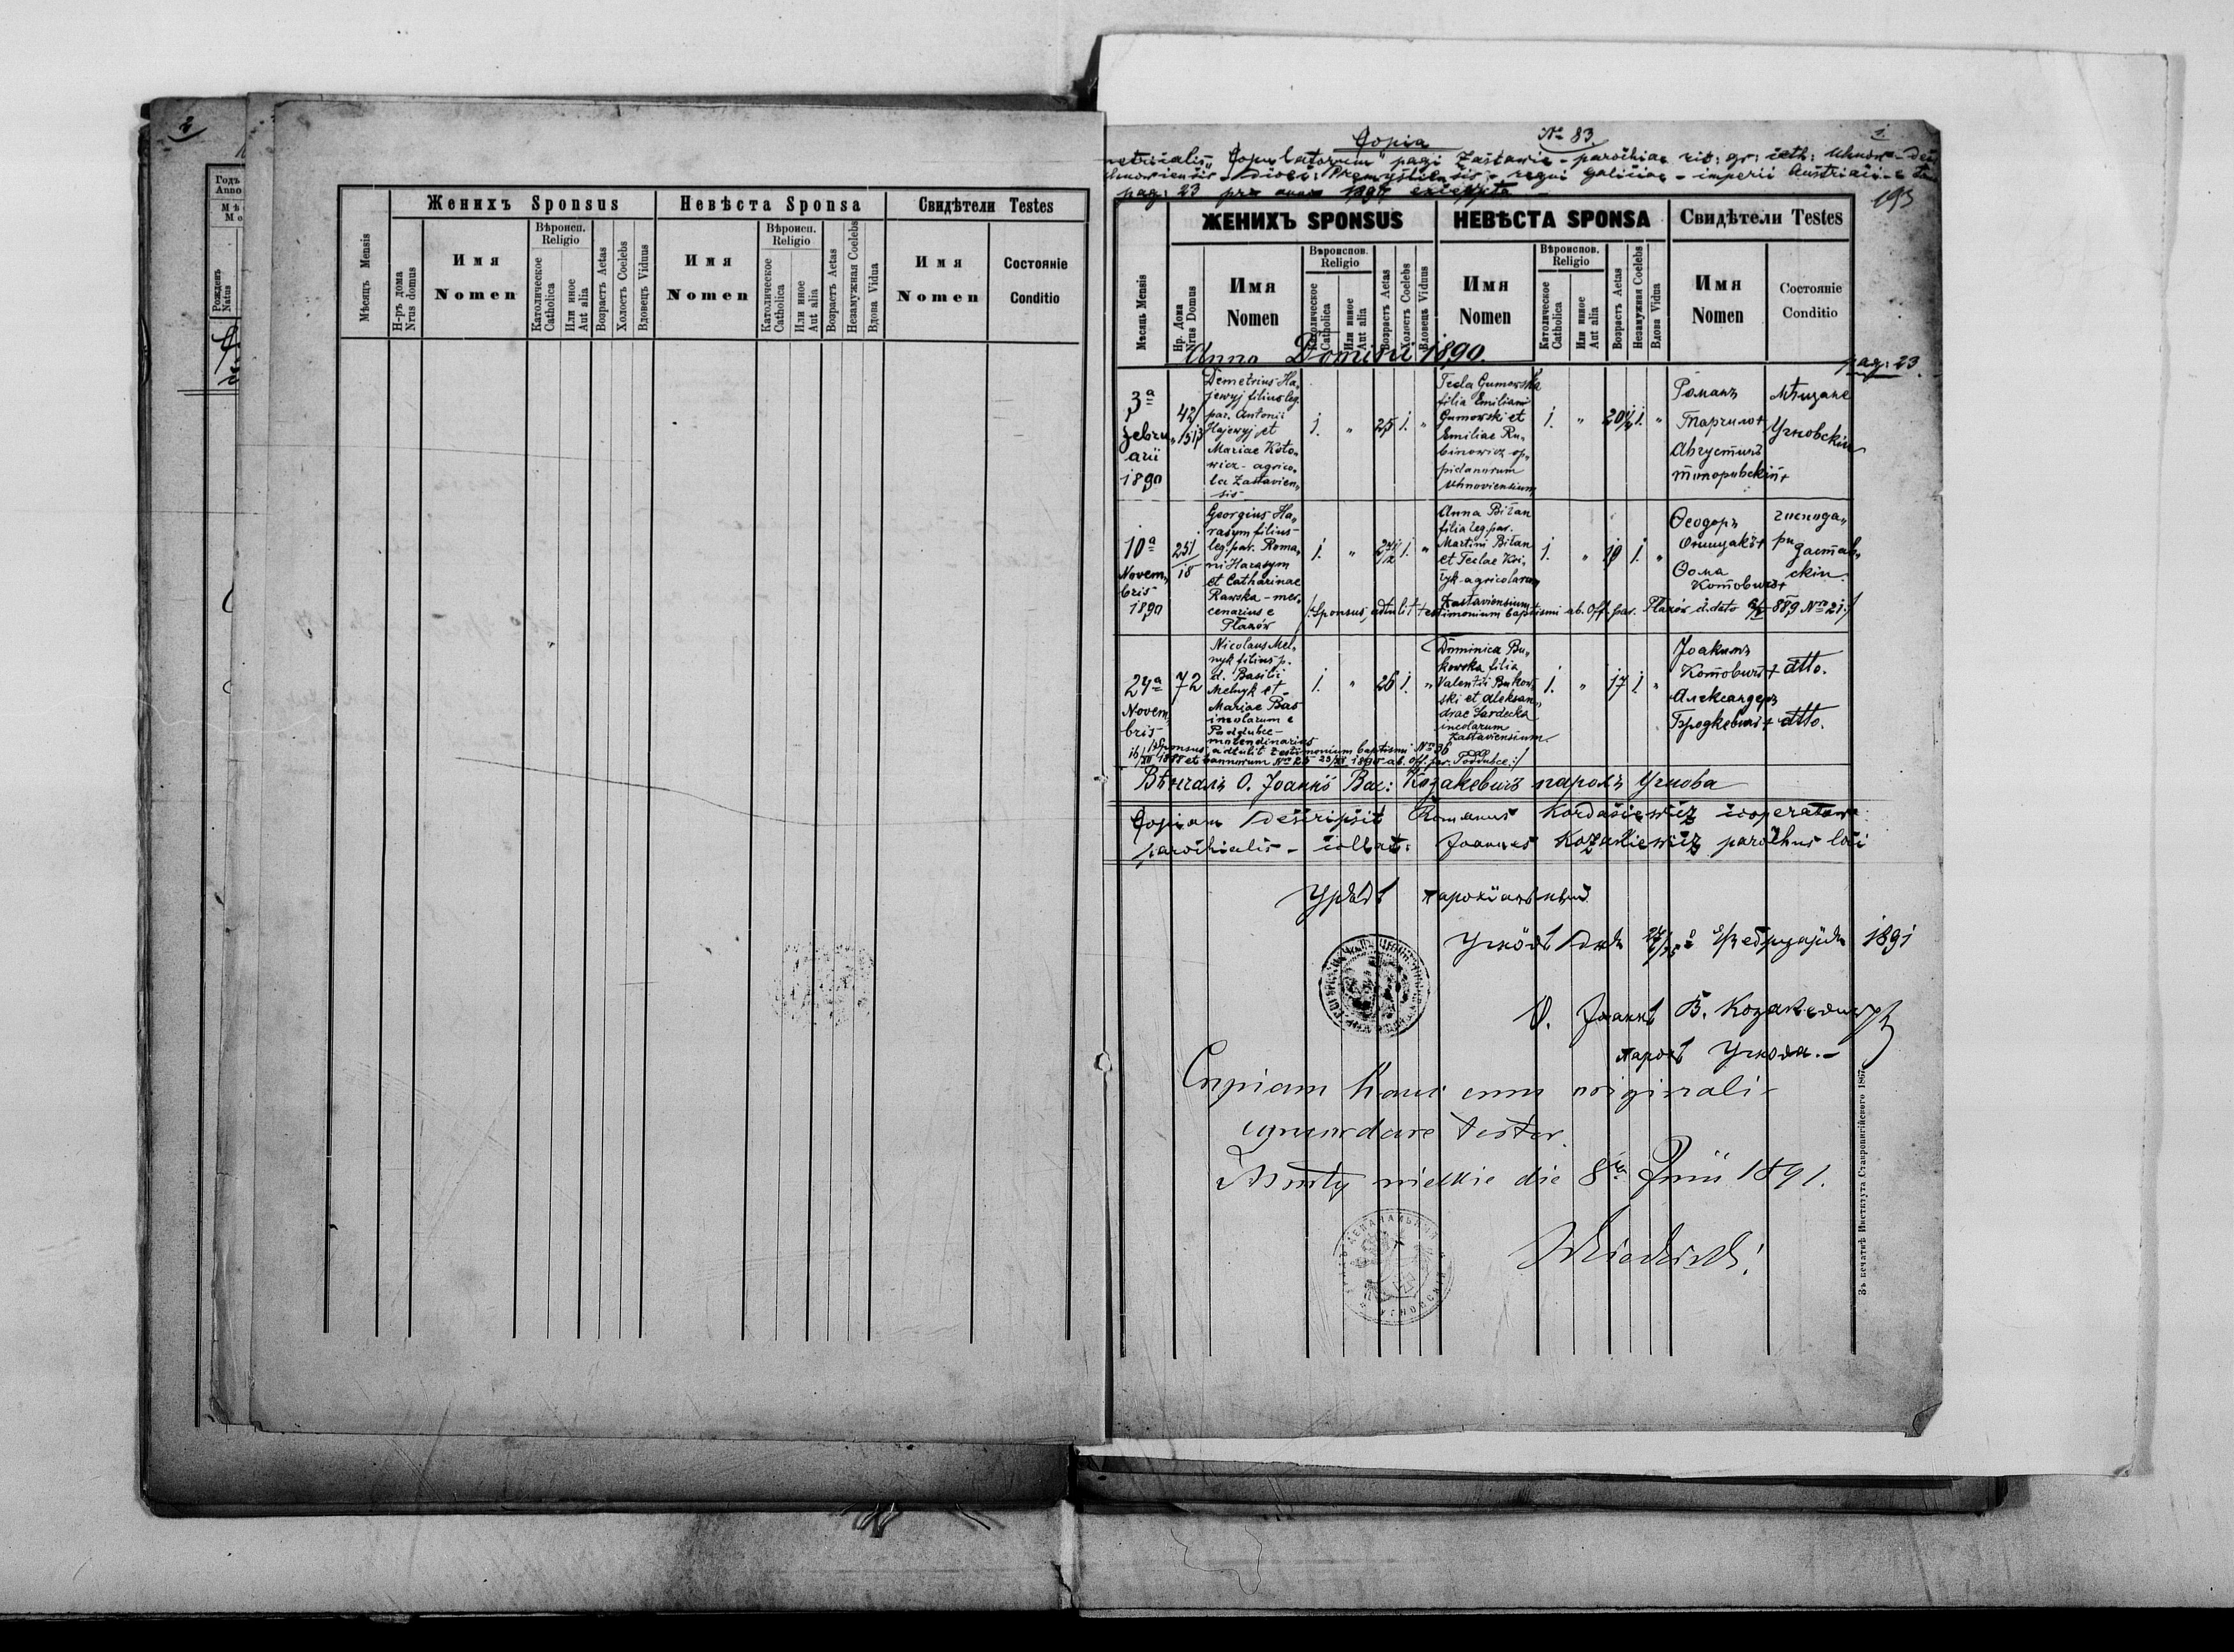 2
Годъ
Anno
Рожденъ
Natus
Женихъ Sponsus
Невѣста Sponsa
Свидѣтели Testes
Мѣсяцъ Mensis
Н-ръ дома
Nrus domus
Имя
Nomen
Вѣроисп.
Religio
Католическое
Catholica
Или иное
Aut alia
Возрастъ Aetas
Холостъ Coelebs
Вдовецъ Viduus
Имя
Nomen
Вѣроисп.
Religio
Католическое
Catholica
Или иное
Aut alia
Возрастъ Aetas
Незамужная Coelebs
Вдова Vidua
Имя
Nomen
Состояніе
Conditio
Copia
№ 83.
1.
Copulatorum" pagi Zastawie - parochiae rit: gr: cath: Uhnow
Dioec: Premysliensis - regni Galiciae - imperii Austriaci
pag: 23 pro anno 1890 excerpta
193
ЖЕНИХЪ SPONSUS
НЕВѢСТА SPONSA
Свидѣтели Testes
Мѣсяцъ Mensis
Нр. Дома
Nrus Domus
Имя
Nomen
Вѣроиспов.
Religio
Католическое
Catholica
Или иное
Aut alia
Возрастъ Aetas
Холостъ Coelebs
Вдовецъ Viduus
Имя
Nomen
Вѣроиспов.
Religio
Католическое
Catholica
Или иное
Aut alia
Возрастъ Aetas
Незамужная Coelebs
Вдова Vidua
Имя
Nomen
Состояние
Conditio
Anno Domini 1890.
pag: 23.
3a
Febru„
arii
1890
42/
Demetrius Ha„
jewyj filius leg.
par. Antonii
Hajewyj et
Mariae Koto„
wicz - agrico„
la Zastavien„
sis
1. „ 25 1. „
Tecla Gumowska
filia Emiliani
Gumowski et
Emiliae Ru„
binowicz op„
pidanorum
Uhnoviensium
1. „ 20 1. „
Романъ
Августинъ
мѣщане
Угновскіи
10a
Novem„
bris
1890
251/
18
Georgius Ha„
rasym filius
leg. par. Roma„
ni Harasym
et Catharinae
Rawska - mer„
cenarius e
Płazów
1. „ 1. „
Anna Biłan
filia leg. par.
Martini Biłan
et Teclae Koi„
łyk - agricolarum
Zastaviensium
1. „ 19 1. „
Ѳеодоръ
Ѳома
Котовичъ+
господа„
ри
Застав„
скіи
/:Sponsus adtulit testimonium baptismi ab. Off. par. Płazów d.dto 889 Nro 21:/
24a
Novem„
bris
72
Nicolaus Mel„
nyk filius p.
d. Basilii
Melnyk et
Mariae Bas
incolarum e
Poddubce -
molendinarius
1. „ 26 1. „
Dominica Bu„
kowska filia
Valentii Bukow„
ski et Aleksan„
drae Sardecka
incolarum
Zastaviensium
1. „ 17 1 „
Іоакимъ
Котовичъ+
Александеръ
Бродкевичъ+
dtto.
dtto.
/:Sponsus adtulit testimonium baptismi Nro 36
1888 et bannorum Nro 25 1890 ab. Off. par. Poddubce:/
Вѣнчалъ О. Іоаннъ Вас: Козакевичъ парохъ Угнова
Copiam descripsit Romanus Kordasiewicz cooperator
parochialis - collat: Joannes Kozakiewicz parochus loci
Урядъ парохіальный
Угнôвъ дня Фебруарія 1891
О. Іоаннъ В. Козакевичъ
парохъ Угнова.-
Copiam hanc cum originali
concordare testor.
wielkie die 8 Junii 1891.
Въ печатнѣ Института Ставропигійского 1867